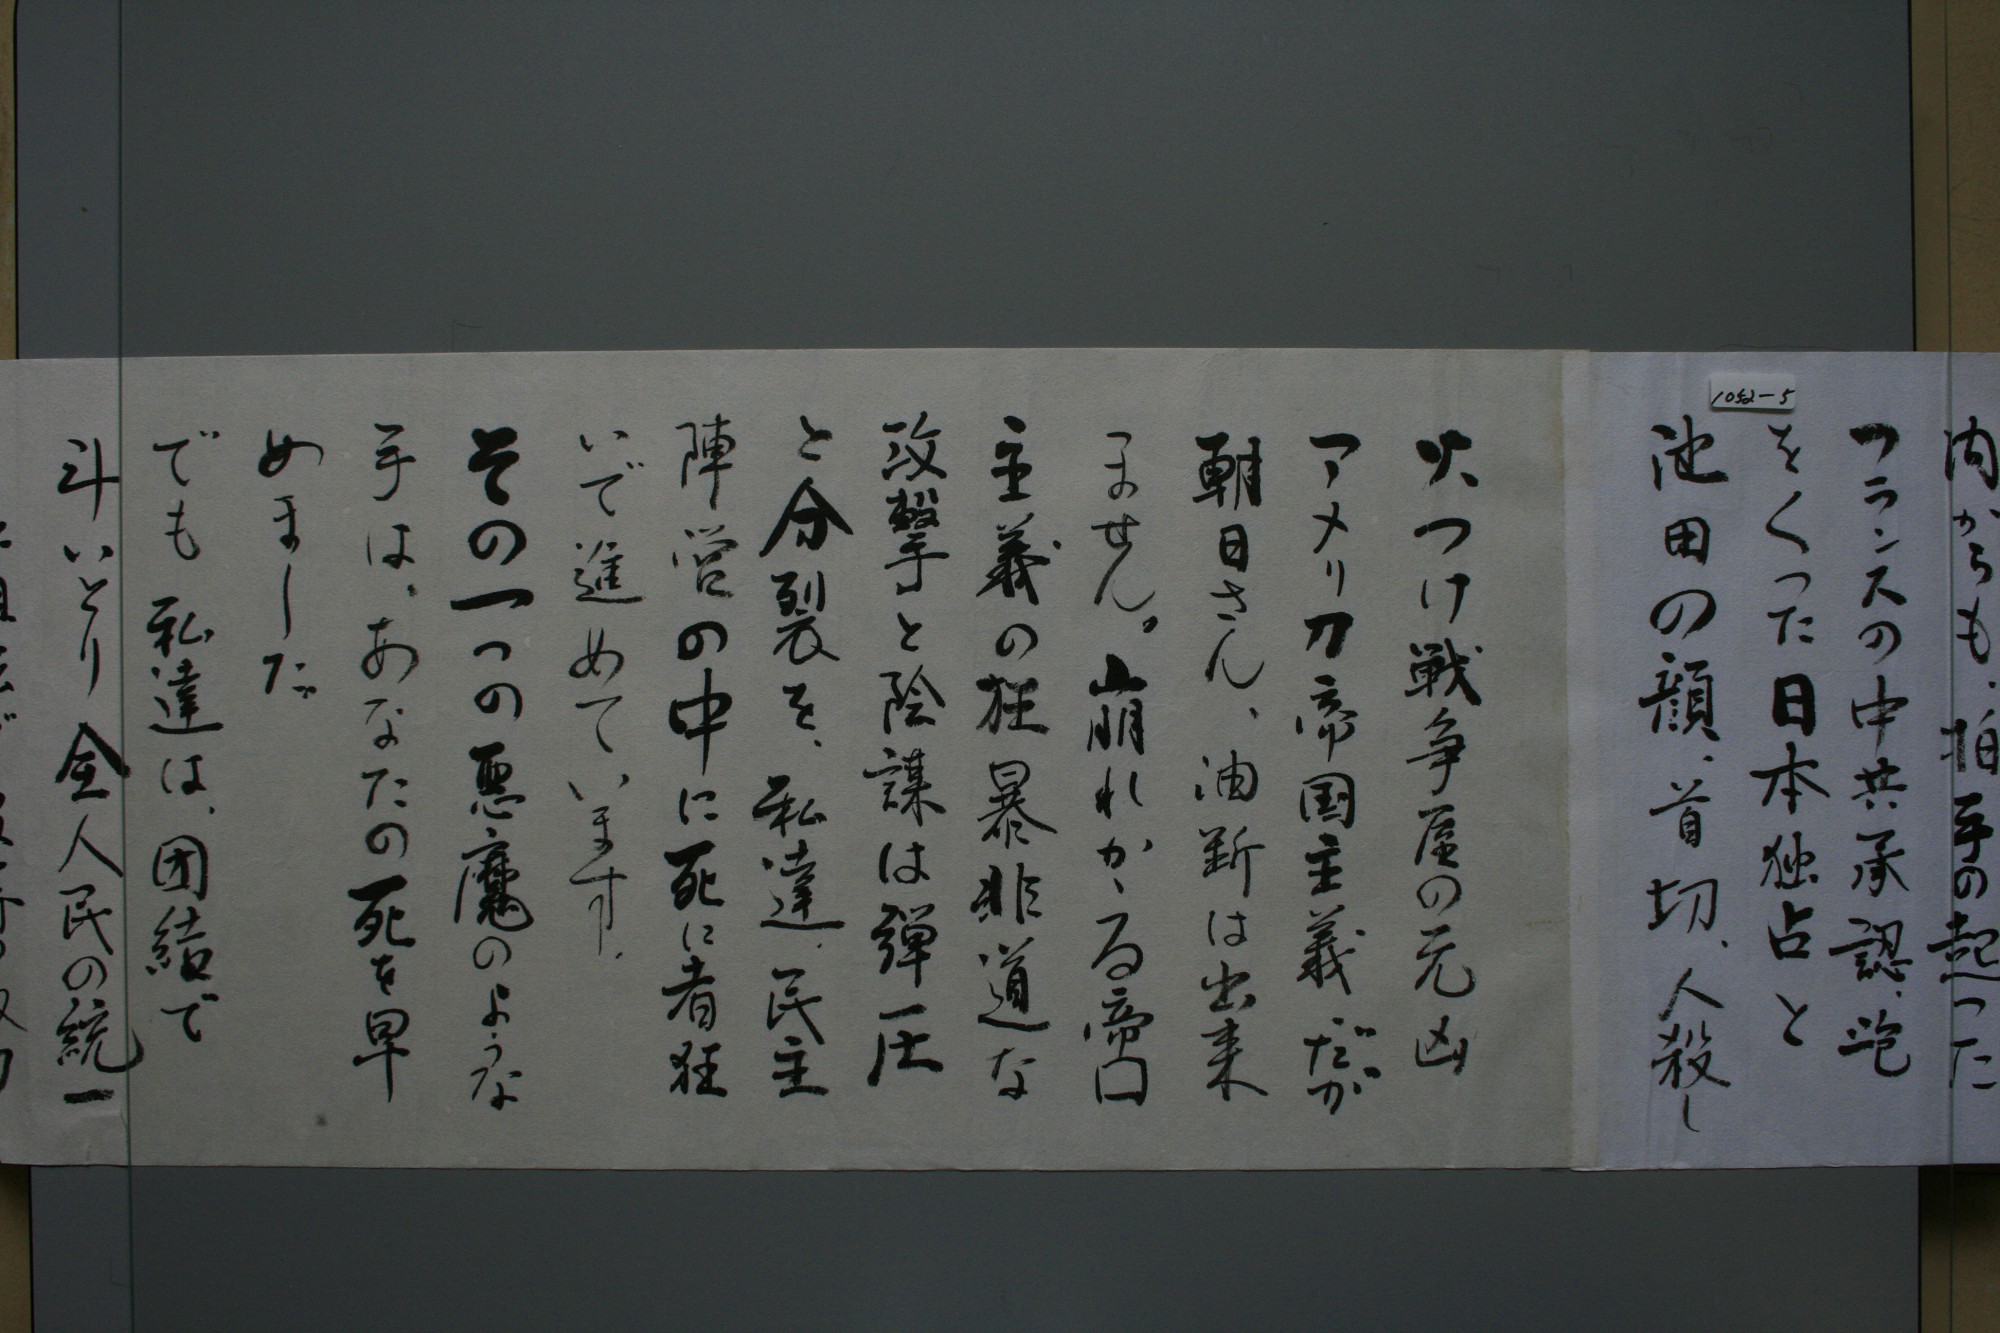 内からも、拍手の起った
フランスの中共承認、泡
をくった日本独占と
池田の顔、首切、人殺し
1052-5
火つけ戦争屋の元凶
アメリカ帝国主義だが
朝日さん、油断は出来
ません。崩れかゝる帝口
主義の狂暴非道な
攻撃と陰謀は弾圧
と分裂を、私達、民主
陣営の中に死に者狂
いで進めています、
その一つの悪魔のような
手は、あなたの死を早
めました
でも私達は、団結で
斗いとり全人民の統一